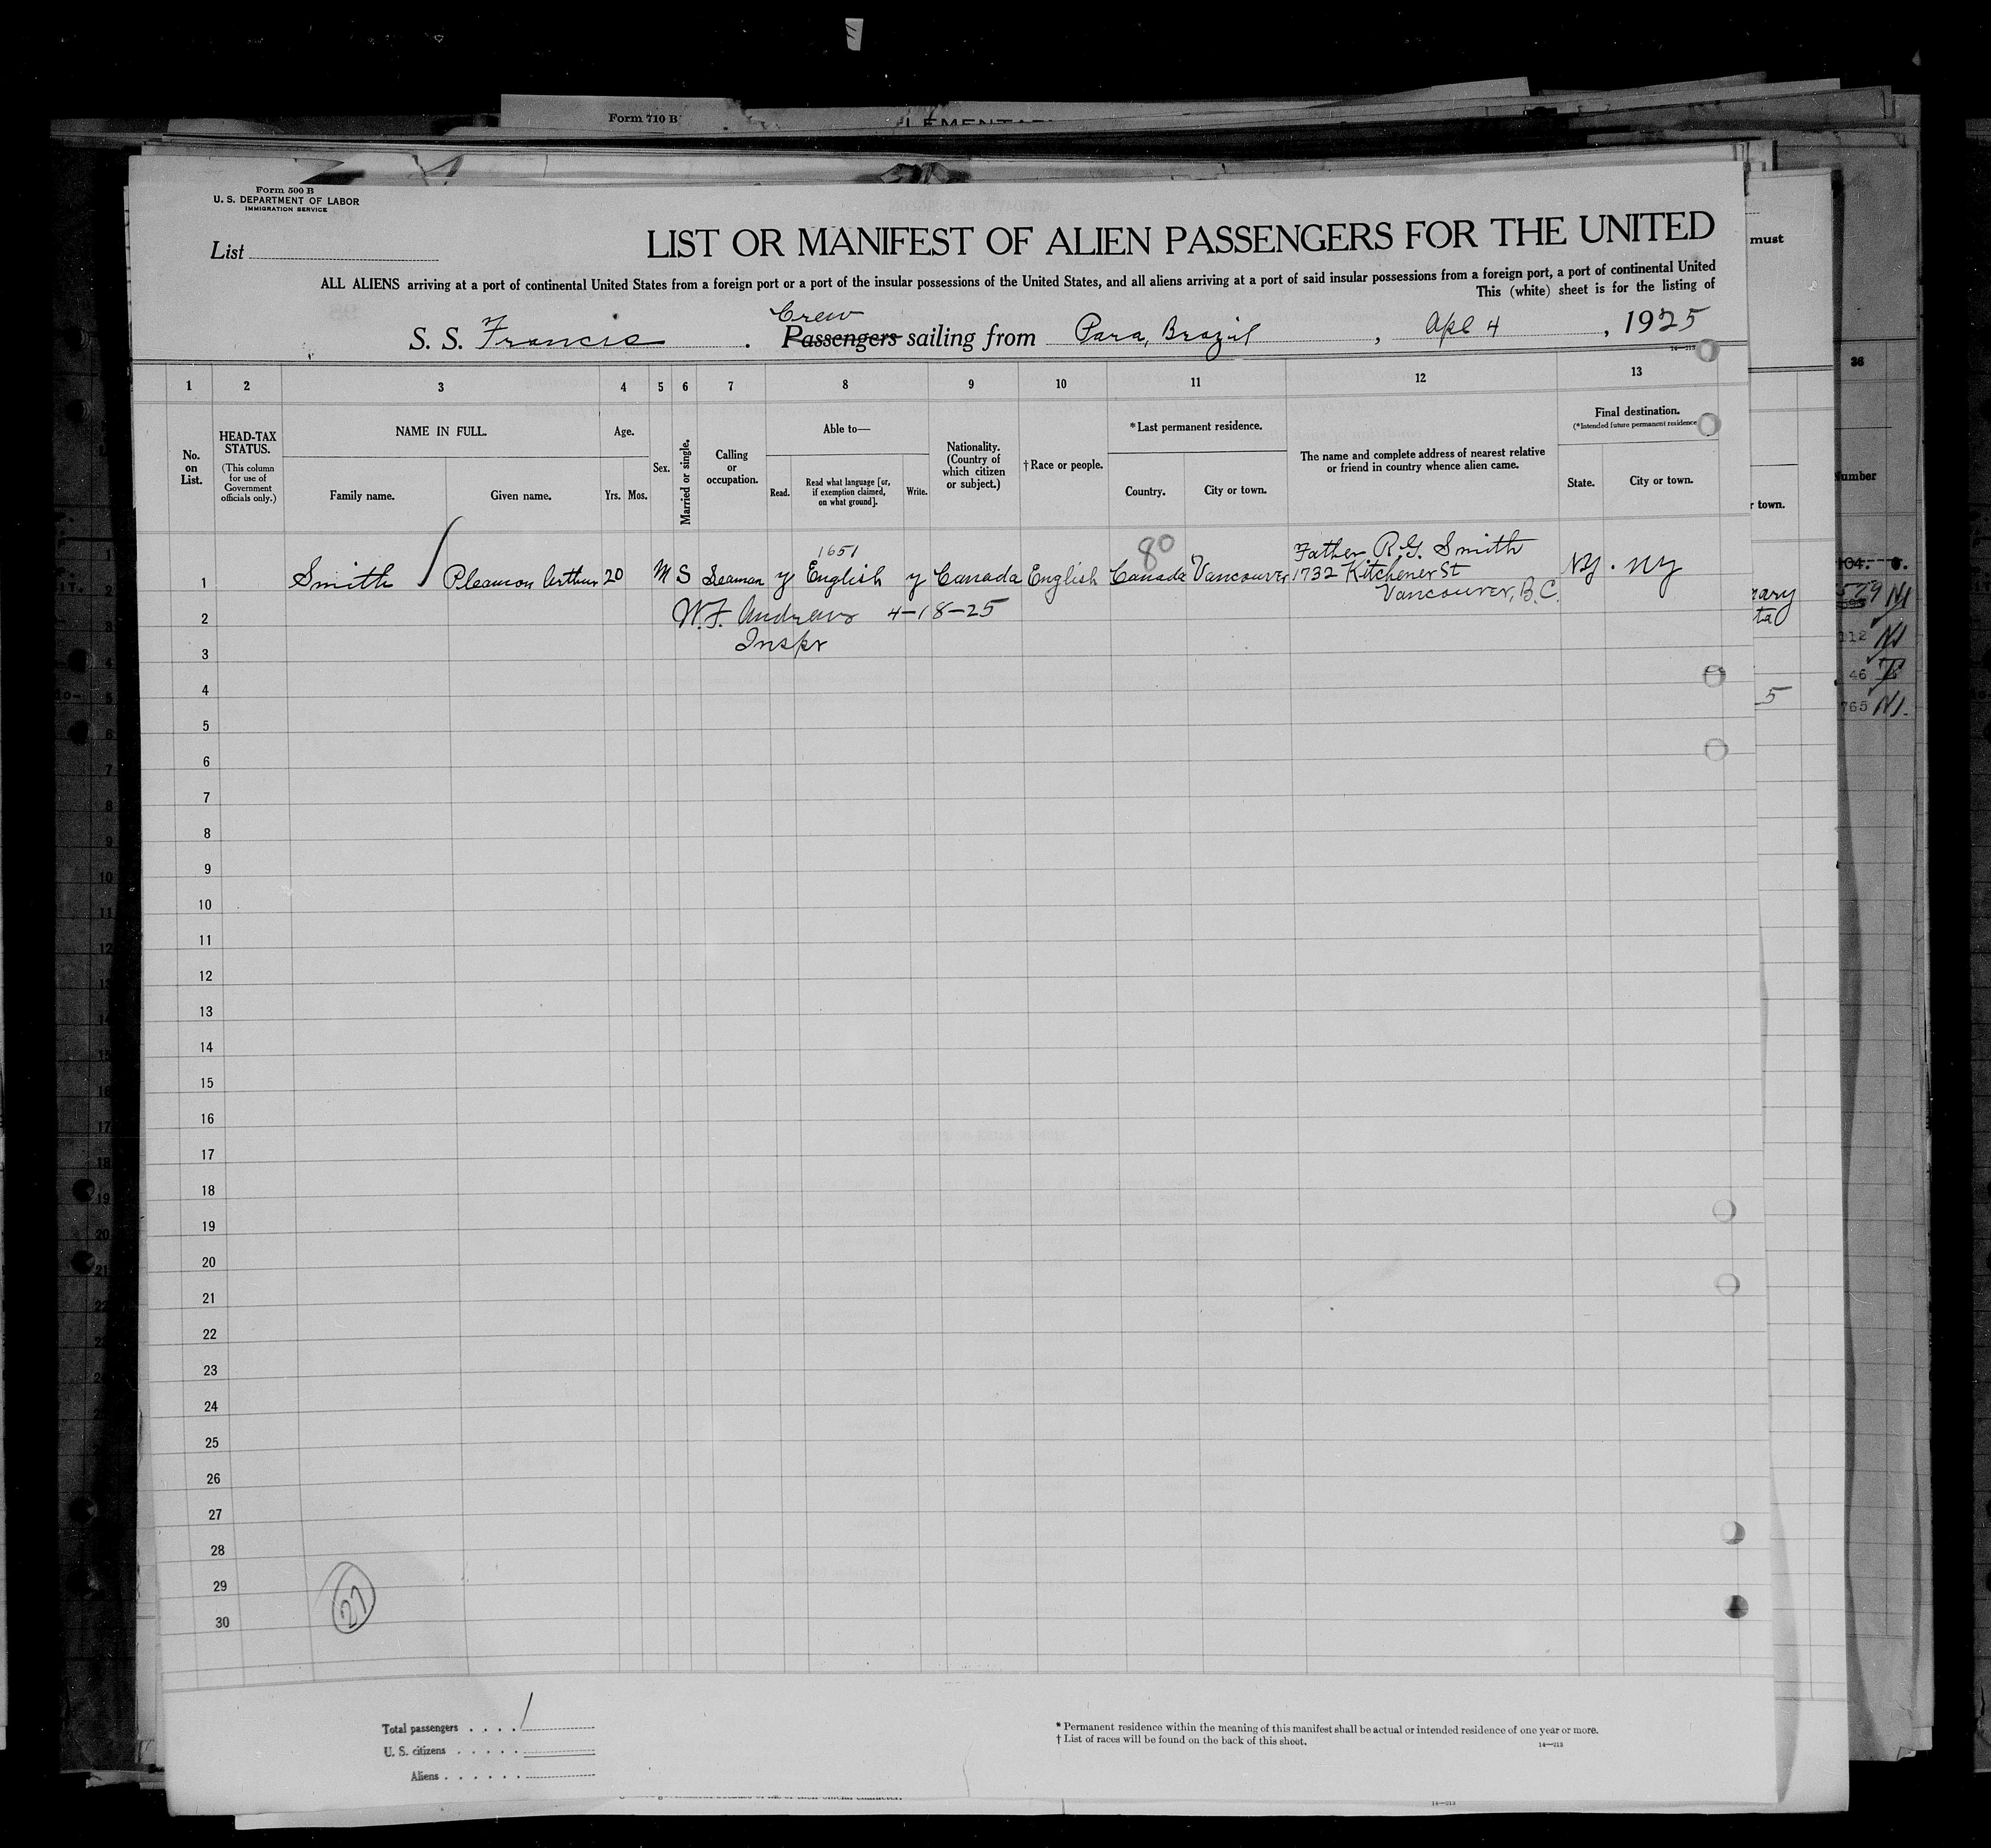 Form 710 B
Form 500 B
U. S. DEPARTMENT OF LABOR
IMMIGRATION SERVICE
List
LIST OR MANIFEST OF ALIEN PASSENGERS FOR THE UNITED
must
ALL ALIENS arriving at a port of continental United States from a foreign port or a port of the insular possessions of the United States, and all aliens arriving at a port of said insular possessions from a foreign port, a port of continental United
This (white) sheet is for the listing of
Crew
S. S. Francis . Passengers sailing from Para, Brazil , Apl 4 , 1925
14—213
1 2 3 4 5 6 7 8 9 10 11 12 13
No. on List.
HEAD-TAX STATUS.
(This column for use of Government officials only.)
NAME IN FULL.
Family name. Given name.
Age.
Yrs. Mos.
Sex.
Married or single.
Calling or occupation.
Able to—
Read.
Read what language [or, if exemption claimed, on what ground].
Write.
Nationality. (Country of which citizen or subject.)
†Race or people.
*Last permanent residence.
Country. City or town.
The name and complete address of nearest relative or friend in country whence alien came.
Final destination.
(*Intended future permanent residence
State. City or town.
36
Number
r town.
1651
80
Father R.G. Smith
1 Smith Arthur 20 M S Seaman y English y Canada English Canada Vancouver 1732 Kitchener St NY. NY
Vancouver, B.C.
2 W.F. Andrews 4-18-25
3 Inspr
4
5
6
7
8
9
10
11
12
13
14
15
16
17
18
19
20
21
22
23
24
25
26
27
28
29
30
27
Total passengers . . . . 1
U. S. citizens . . . . .
Aliens . . . . . .
* Permanent residence within the meaning of this manifest shall be actual or intended residence of one year or more.
† List of races will be found on the back of this sheet.
14—213